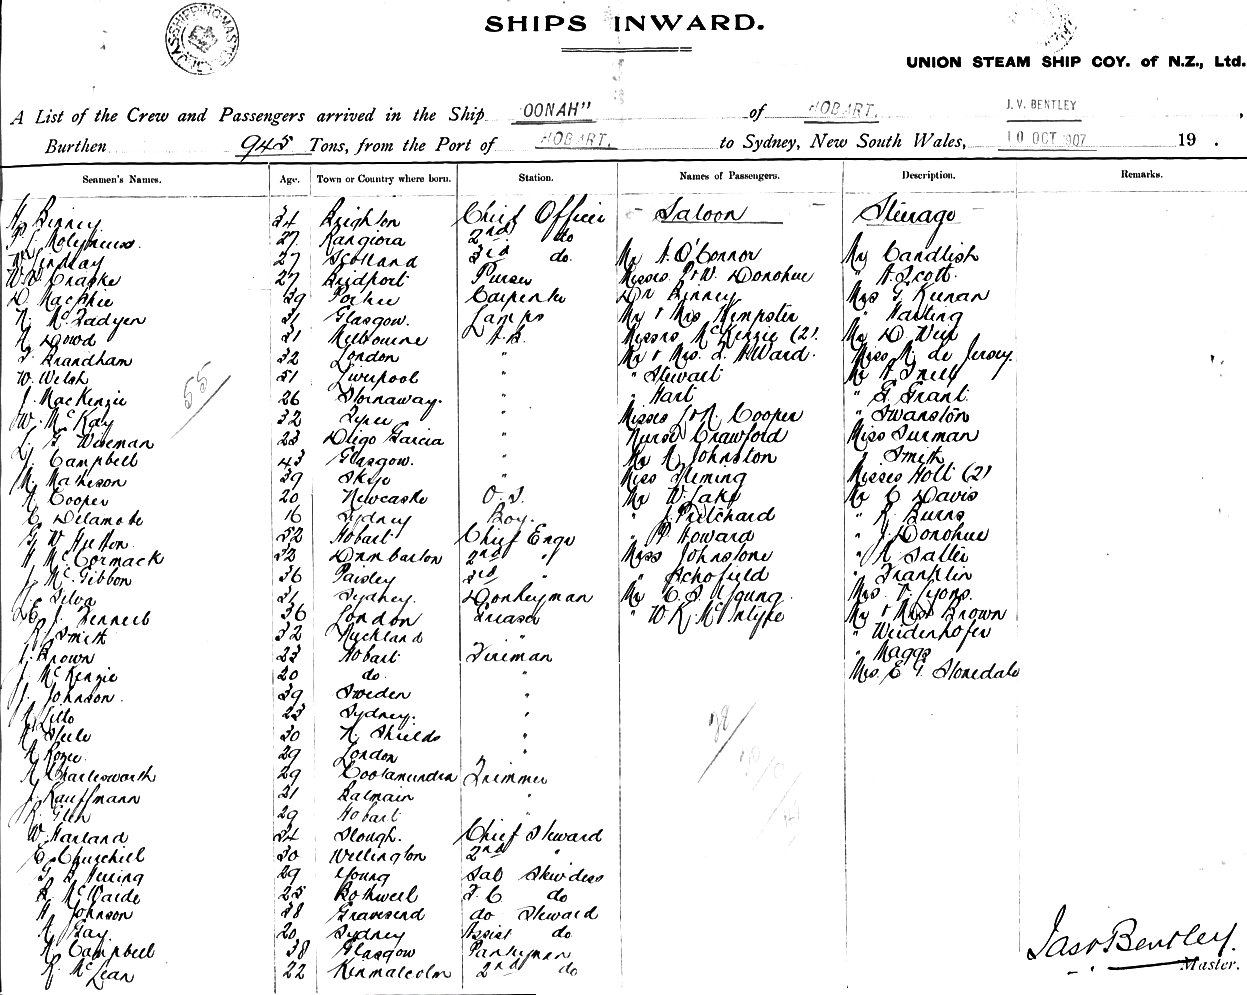 SHIPPING MASTER
SHIPS INWARD.
UNION STEAM SHIP COY. of N.Z., Ltd.
A List of the Crew and Passengers arrived in the Ship OONAH" of HOBART. J. V. BENTLEY,
Burthen 945 Tons, from the Port of HOBART. to Sydney, New South Wales, 10 OCT 1907 19 .
Seamen's Names. Age. Town or Country where born. Station. Names of Passengers. Description. Remarks.
Binney 34 Brighton Chief Officer Saloon Steerage
Molyneux 27 Rangiora 2nd do
Finlay 27 Scotland 3rd do. Mr A. O'Connor Mr Candlish
27 Bridport Purser Messrs P & W. Donohue " A. Scott
D. MacPhee 39 Carpenter Dr Binney Mrs G Kunan
N. McFadyen 31 Glasgow. Lamps Mr & Mrs Kempster " Harting
Dowd 31 Melbourne A.B. Messrs McKenzie (2) Mr D Weir
Brandham 32 London " Mr & Mrs. Ward. Miss de Jersey.
W. Welsh 51 Liverpool " " Stewart Mr A Snell
J. MacKenzie 26 Stornaway. " " Hart " Grant
W. McKay 32 " Misses Cooper " Swanston
G. Waseman 23 Diego Garcia " Nurse Crawford Miss Surman
Campbell 43 Glasgow. " Mr A Johnston " Smith
M. Matheson 39 Skye " Miss Fleming Misses Holt (2)
A. Cooper 20 Newcastle O.S. Mr W. Lake Mr C Davis
C. Delamobe 16 Sydney Boy. " J Pritchard " R Burns
G. W. Hutton 52 Hobart Chief Engr " Howard " J Donohue
H McCormack 32 Dumbarton 2nd " Miss Johnstone " Salter
J. McGibbon 36 Paisley 3rd " " Schofield " Franklin
J. Silva 31 Sydney. Donkeyman Mr C. S. Young Mrs Lyons.
36 London Greaser " W K McIntyre Mr & Miss Brown
Smith 32 Auckland " " Weidenhofer
J. Brown 23 Hobart Fireman " Maggs
J. McKenzie 20 do. " Mrs. E G Stonedale
J. Johnson. 39 Sweden "
23 Sydney. "
Steele 30 N. Shields "
29 London "
A Charlesworth 29 Cootamundra Trimmer
J. Kauffmann 21 Balmain "
R. Glen 29 Hobart "
W. Harland 34 Slough. Chief Steward
C. Churchill 30 Wellington 2nd "
G. Herring 29 Young Sal Stwdess
25 Bothwell F.C do
H. Johnson 38 Gravesend do Steward
A Gay 20 Sydney Assist do
A Campbell 38 Glasgow Pantryman
R. McLean 22 Kinmalcolm 2nd do
55
Jas V Bentley.
Master.